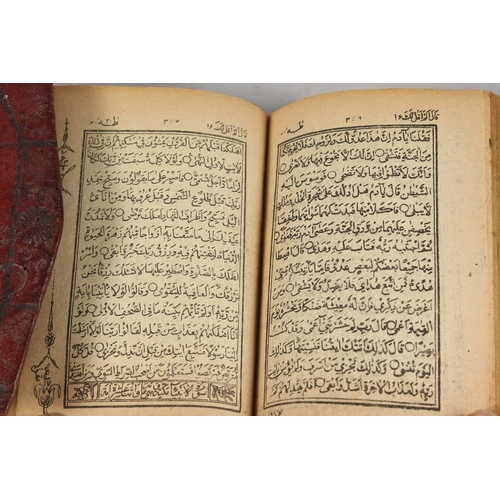 قال الم اقل لك ١٦ ٣٠٦ طه
فقلنا يا ادم ان هذا عدو لك ولزوجك فلا يخرجنكما
من الجنة فتشقى ان لك الا تجوع فيها ولا تعرى وانك
لا تظمؤا فيها ولا تضحى فوسوس اليه
الشيطن قال يا ادم هل ادلك على شجرة الخلد وملك
لا يبلى فاكلا منها فبدت لهما سواتهما وطفقا
يخصفان عليهما من ورق الجنة وعصى ادم
ربه فغوى ثم اجتبيه ربه فتاب عليه وهدى قال اهبطا
منها جميعا بعضكم لبعض عدو فاما ياتينكم منى
هدى فمن اتبع هداى فلا يضل ولا يشقى ومن
اعرض عن ذكرى فان له معيشة ضنكا ونحشره يوم
القيمة اعمى قال رب لم حشرتنى اعمى وقد كنت
بصيرا قال كذلك اتتك اياتنا فنسيتها وكذلك
اليوم تنسى وكذلك نجزى من اسرف ولم يؤمن بايات
ربه ولعذاب الاخرة اشد وابقى افلم يهد لهم كم
قال الم اقل لك ١٦ ٣٠٧ طه
اهلكنا قبلهم من القرون يمشون فى مسكنهم ان فى ذلك
لايات لاولى النهى ولولا كلمة سبقت من ربك لكان
لزاما واجل مسمى فاصبر على ما يقولون وسبح بحمد
ربك قبل طلوع الشمس وقبل غروبها ومن اناء
اليل فسبح واطراف النهار لعلك ترضى ولا
تمدن عينيك الى ما متعنا به ازواجا منهم زهرة الحيوة
الدنيا لنفتنهم فيه ورزق ربك خير وابقى وامر
اهلك بالصلوة واصطبر عليها لا نسئلك رزقا نحن
نرزقك والعاقبة للتقوى وقالوا لولا ياتينا باية
من ربه اولم تاتهم بينة ما فى الصحف الاولى
ولو انا اهلكناهم بعذاب من قبله لقالوا ربنا لولا ارسلت
الينا رسولا فنتبع اياتك من قبل ان نذل ونخزى قل كل
متربص فتربصوا فستعلمون من اصحاب الصراط السوى ومن اهتدى
سورة الانبياء مكية وهى مائة واثنتا عشرة اية